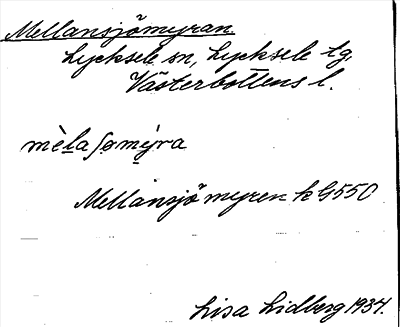 Mellansjömyran
Lycksele sn, Lycksele tg,
Västerbottens l.
mèlaʃømýra
Mellansjömyren k G550
Lisa Lidberg 1934.